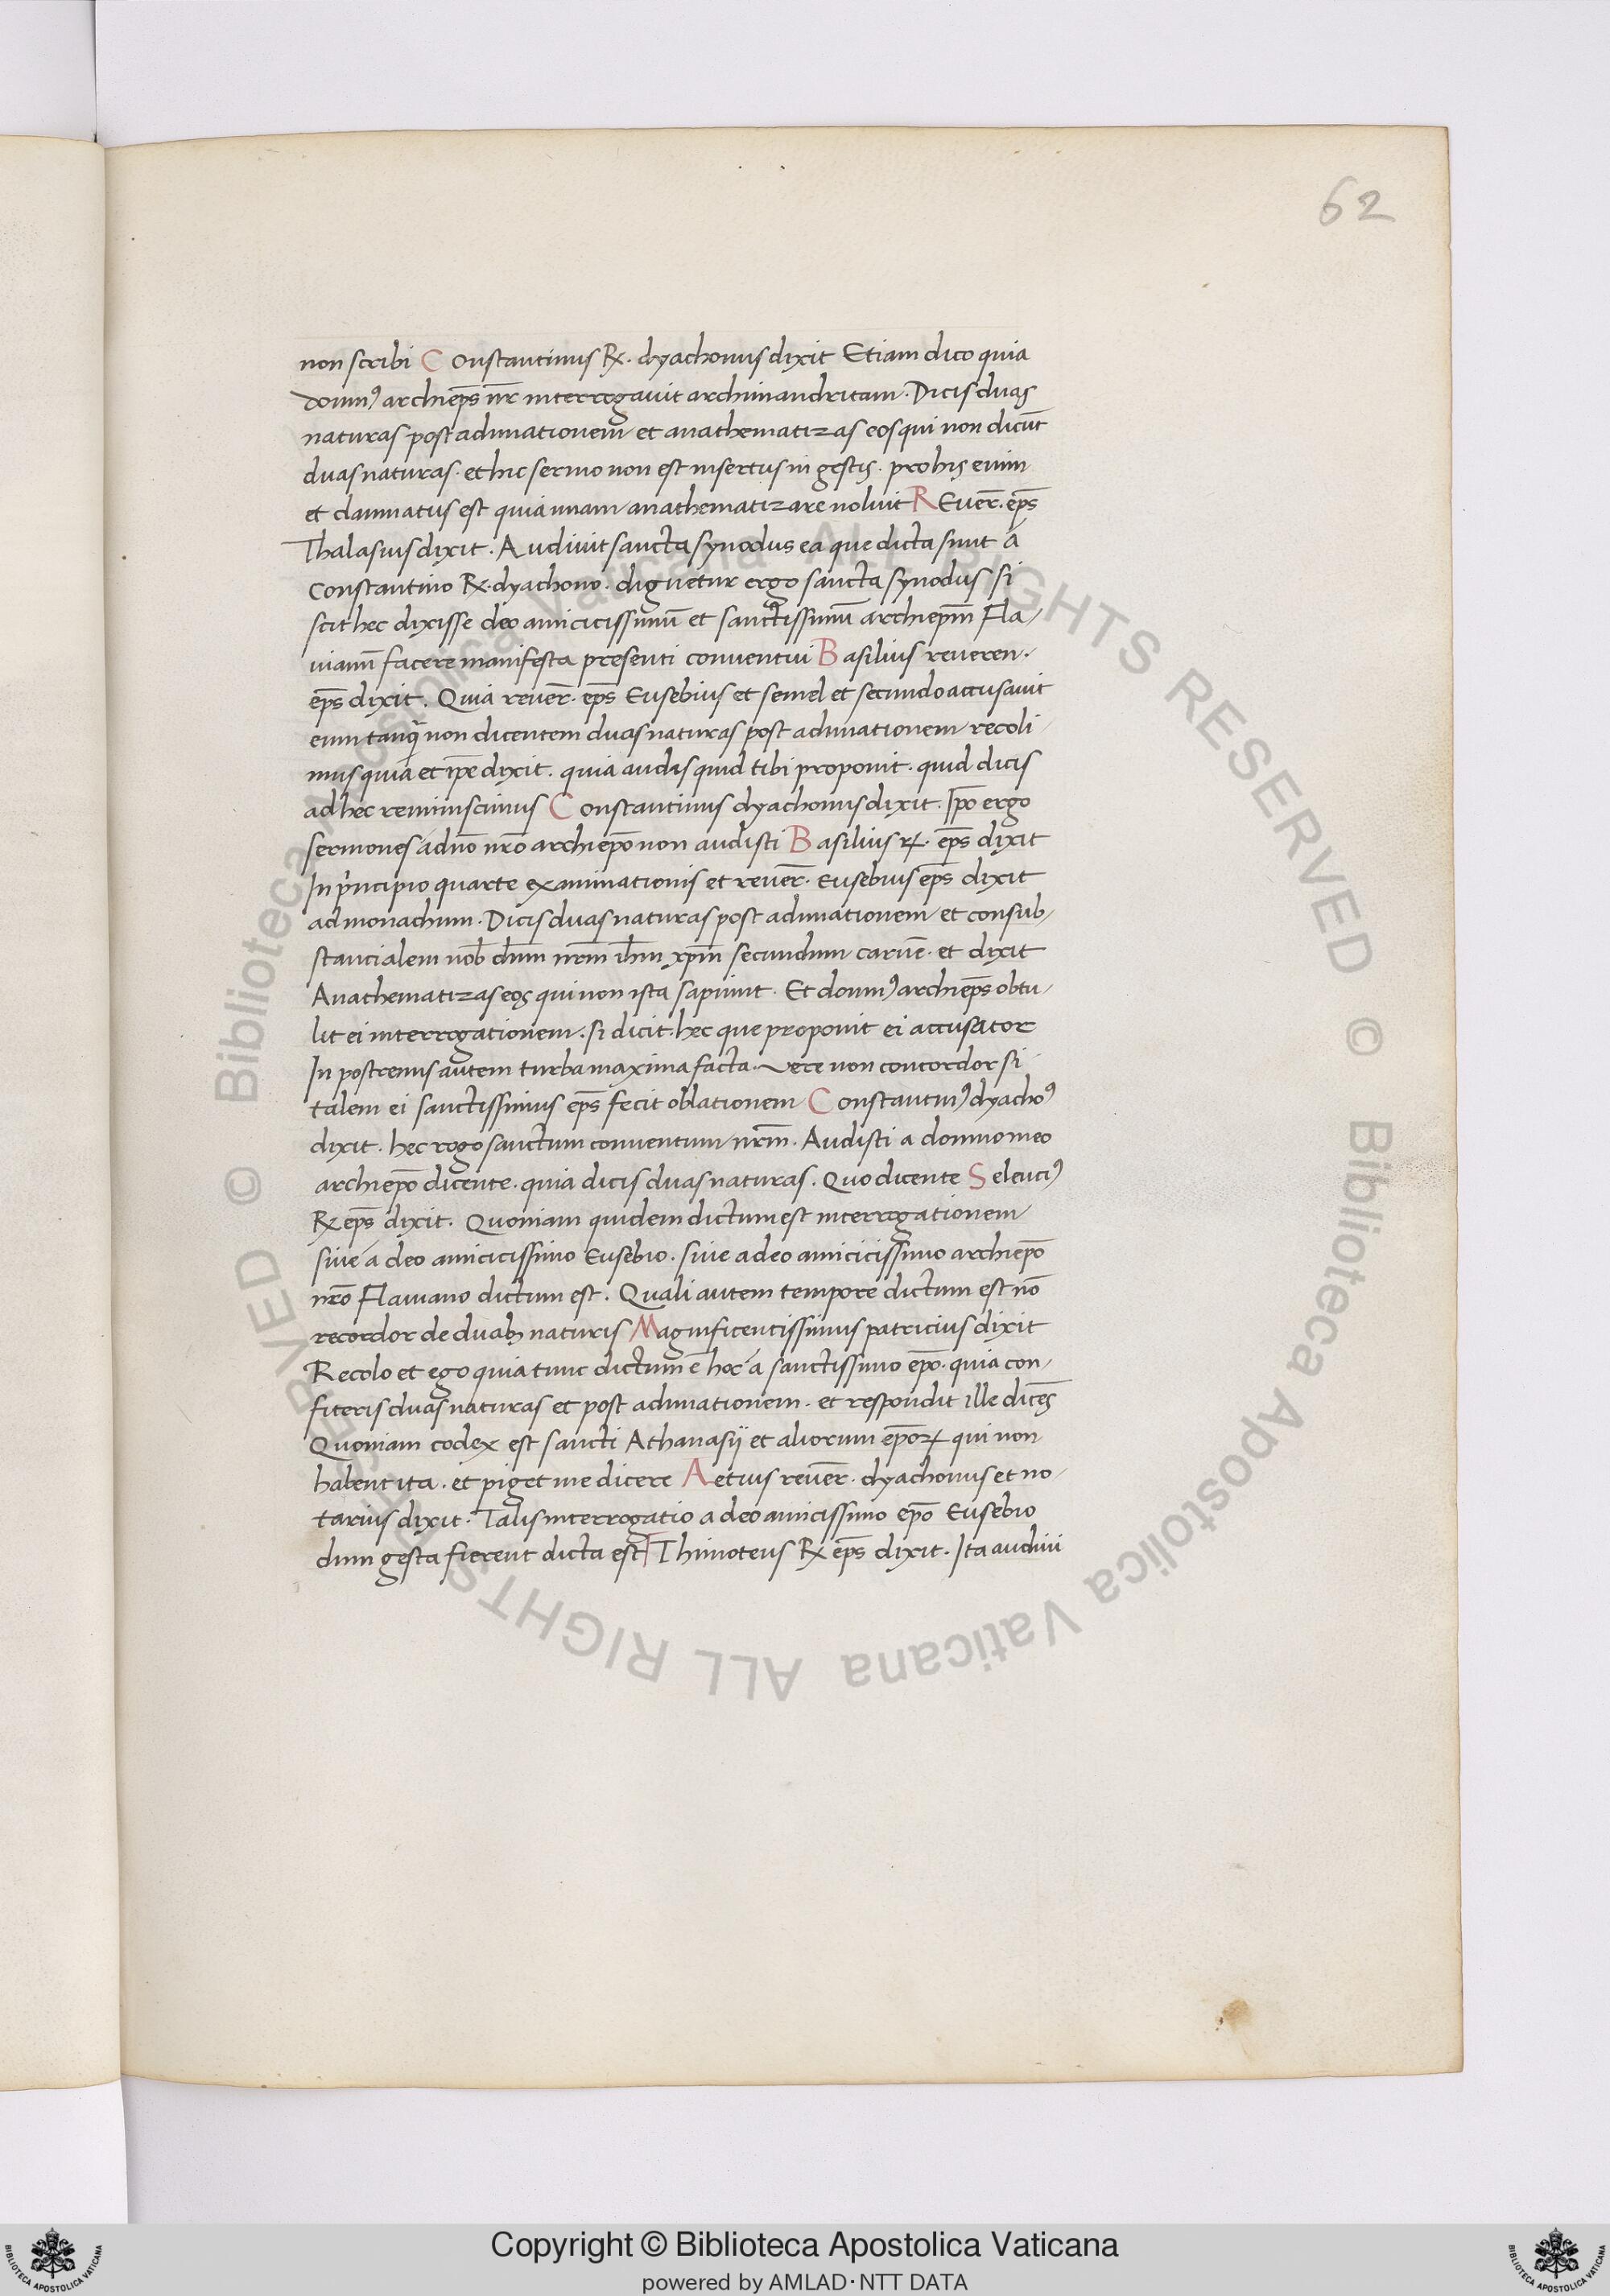 62
non scribi Constantinus R. dyachonus dixit Etiam dico quia
domn⁹ archiep̄s nr̄ interrogavit archimandritam. Dicis duas
naturas post adunationem et anathematizas eos qui non dicūt
duas naturas. et hic sermo non est insertus in gestis. pro his enim
et damnatus est quia unam anathematizare noluit Reuer̄. ep̄s
Thalasius dixit. Audiuit sancta synodus ea que dicta sunt a
Constantino R. dyachono. dignetur ergo sancta synodus si
scit hec dixisse deo amicicissimū et sanctissimū archiep̄m Fla-
uianū facere manifesta presenti conventui Basilius reueren.
ep̄s dixit. Quia reuer̄. ep̄s Eusebius et semel et secundo accusauit
eum tanq̄ non dicentem duas naturas post adunationem recoli-
mus quia et ip̄e dixit. quia audis quid tibi proponit. quid dicis
ad hec reminiscimus Constantinus dyachonus dixit. Ip̄o ergo
sermones a dn̄o nr̄o archiep̄o non audisti Basilius R. ep̄s dixit
In p̍ncipio quarte examinationis et reuer̄. Eusebius ep̄s dixit
ad monachum. Dicis duas naturas post adunationem et consub-
stancialem nob̄ dn̄m nr̄m ih̄m xp̄m secundum carnē. et dixit
Anathematizas eos qui non ista sapiunt. Et domn⁹ archiep̄s obtu-
lit ei interrogationem. si dicit. hec que proponit ei accusator
In postremis autem turba maxima facta. vere non concordor si
talem ei sanctissimus ep̄s fecit oblationem Constantin⁹ dyacho⁹
dixit. hec rogo sanctum conventum nr̄m. Audisti a domno meo
archiep̄o dicente. quia dicis duas naturas. Quo dicente Seleuci⁹
R ep̄s dixit. Quoniam quidem dictum est interrogationem
siue a deo amicicissimo Eusebio. siue a deo amicicissimo archiep̄o
nr̄o Flauiano dictum est. Quali autem tempore dictum est nō
recordor de duabꝫ naturis Magnificentissimus patricius dixit
Recolo et ego quia tunc dictum ē hoc a sanctissimo ep̄o. quia con-
fiteris duas naturas et post adunationem. et respondit ille dicēs
Quoniam codex est sancti Athanasij et aliorum ep̄oꝝ qui non
habent ita. et piget me dicere Aetius reuer̄. dyachonus et no-
tarius dixit. Talis interrogatio a deo amicissimo ep̄o Eusebio
dum gesta fierent dicta est Thimoteus R ep̄s dixit. Ita audiui
© Biblioteca Apostolica Vaticana ALL RIGHTS RESERVED © Biblioteca Apostolica Vaticana ALL RIGHTS RESERVED
Copyright © Biblioteca Apostolica Vaticana
powered by AMLAD·NTT DATA
BIBLIOTECA APOSTOLICA VATICANA
BIBLIOTECA APOSTOLICA VATICANA